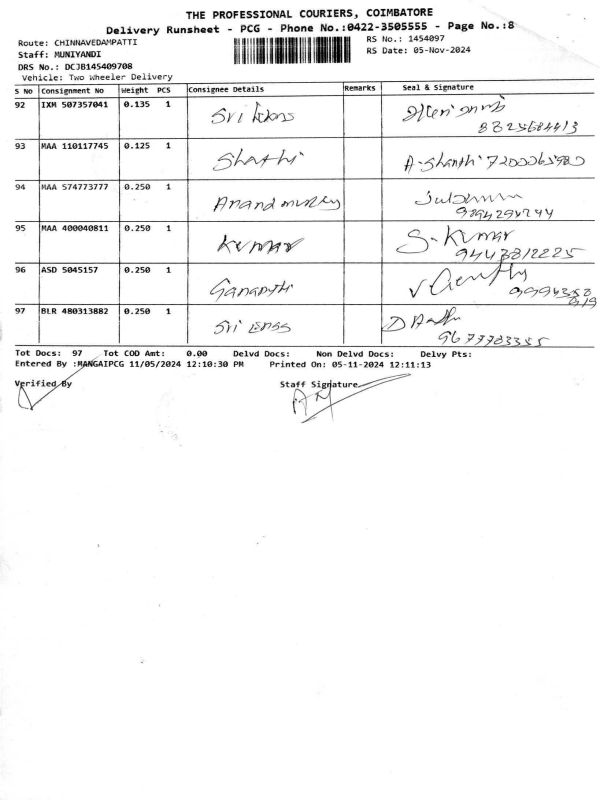 THE PROFESSIONAL COURIERS, COIMBATORE
Delivery Runsheet - PCG - Phone No.:0422-3505555 - Page No.:8
Route: CHINNAVEDAMPATTI
RS No.: 1454097
Staff: MUNIYANDI
RS Date: 05-Nov-2024
DRS No.: DCJB145409708
Vehicle: Two Wheeler Delivery
S No Consignment No Weight PCS Consignee Details Remarks Seal & Signature
92 IXM 507357041 0.135 1 Sri
93 MAA 110117745 0.125 1 Shathi A-Shanthi
94 MAA 574773777 0.250 1 Anand
95 MAA 400040811 0.250 1 Kumar S-Kumar
9443812225
96 ASD 5045157 0.250 1
97 BLR 480313882 0.250 1 Sri
9677783355
Tot Docs: 97 Tot COD Amt: 0.00 Delvd Docs: Non Delvd Docs: Delvy Pts:
Entered By :MANGAIPCG 11/05/2024 12:10:30 PM Printed On: 05-11-2024 12:11:13
Verified By Staff Signature